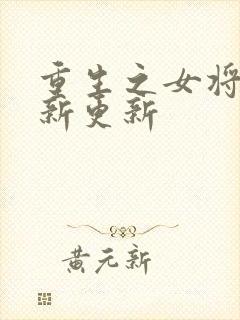 重生之女将
新更新
黄元新